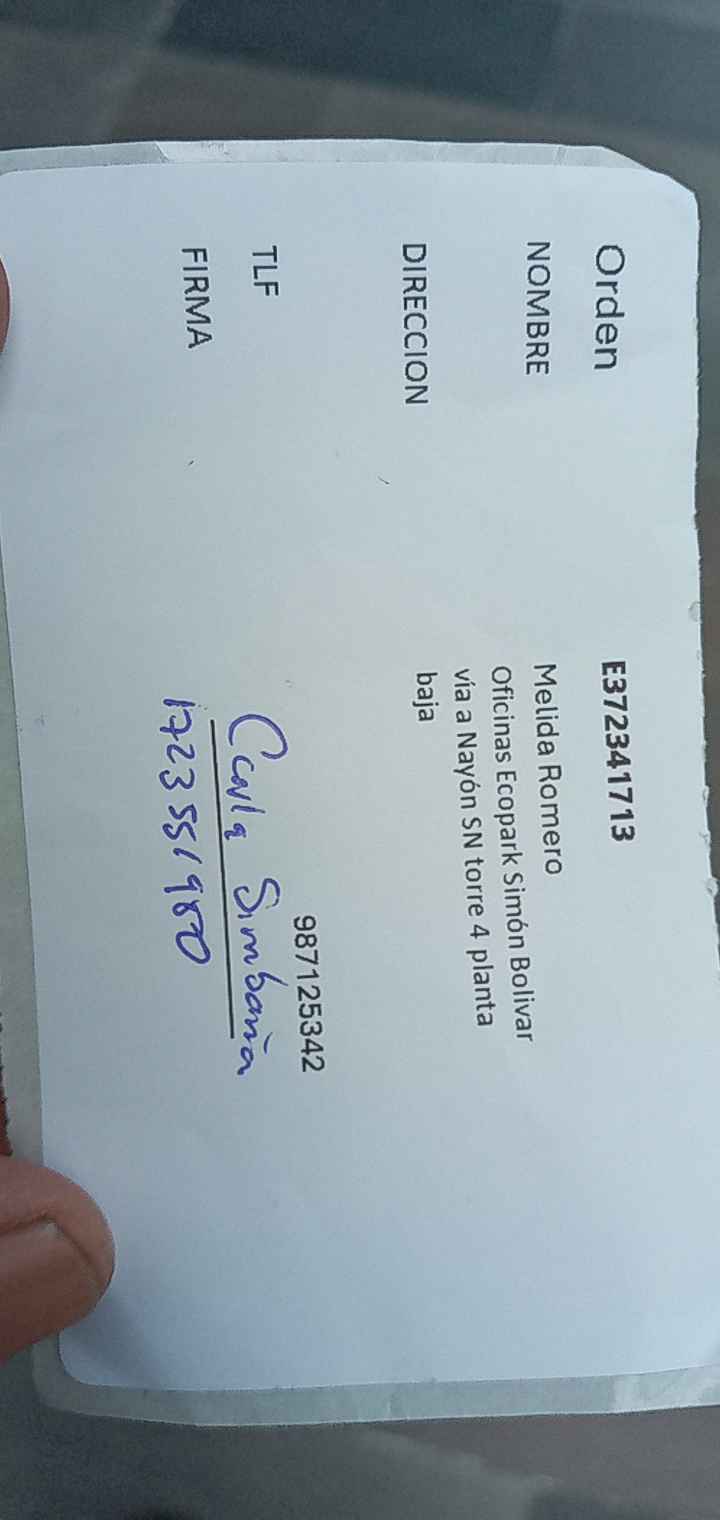 Orden E372341713
NOMBRE Melida Romero
Oficinas Ecopark Simón Bolivar
DIRECCION vía a Nayón SN torre 4 planta
baja
TLF 987125342
FIRMA Carla Simbaña
1723551980